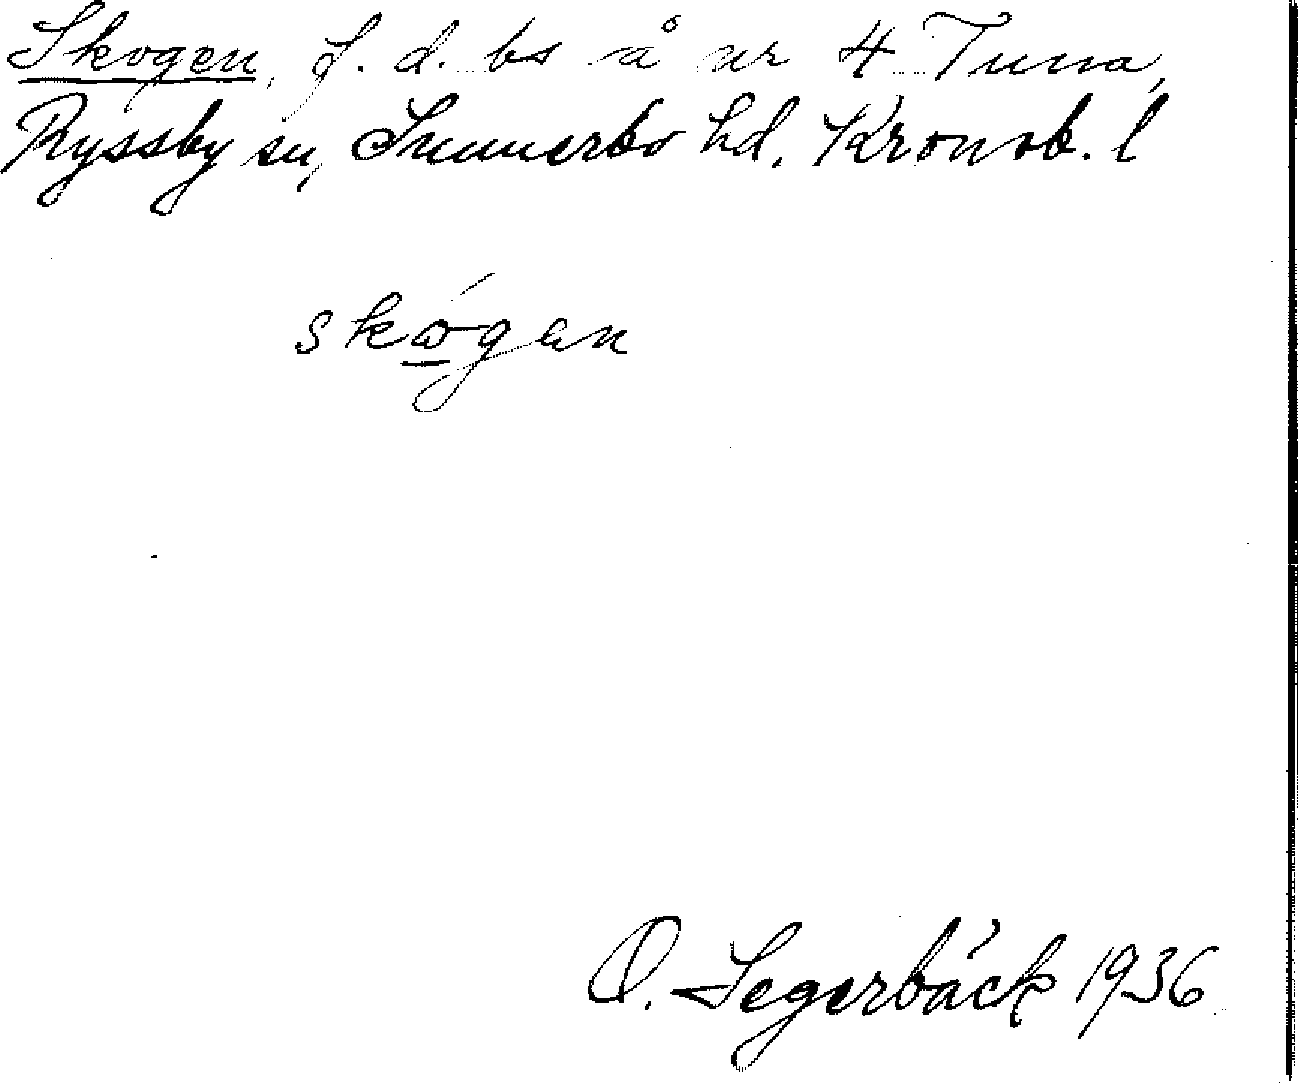 Skogen, f. d. bs å nr 4 Tuna,
Ryssby sn, Sunnerbo hd. Kronob. l
skógan
O. Segerbäck 1936